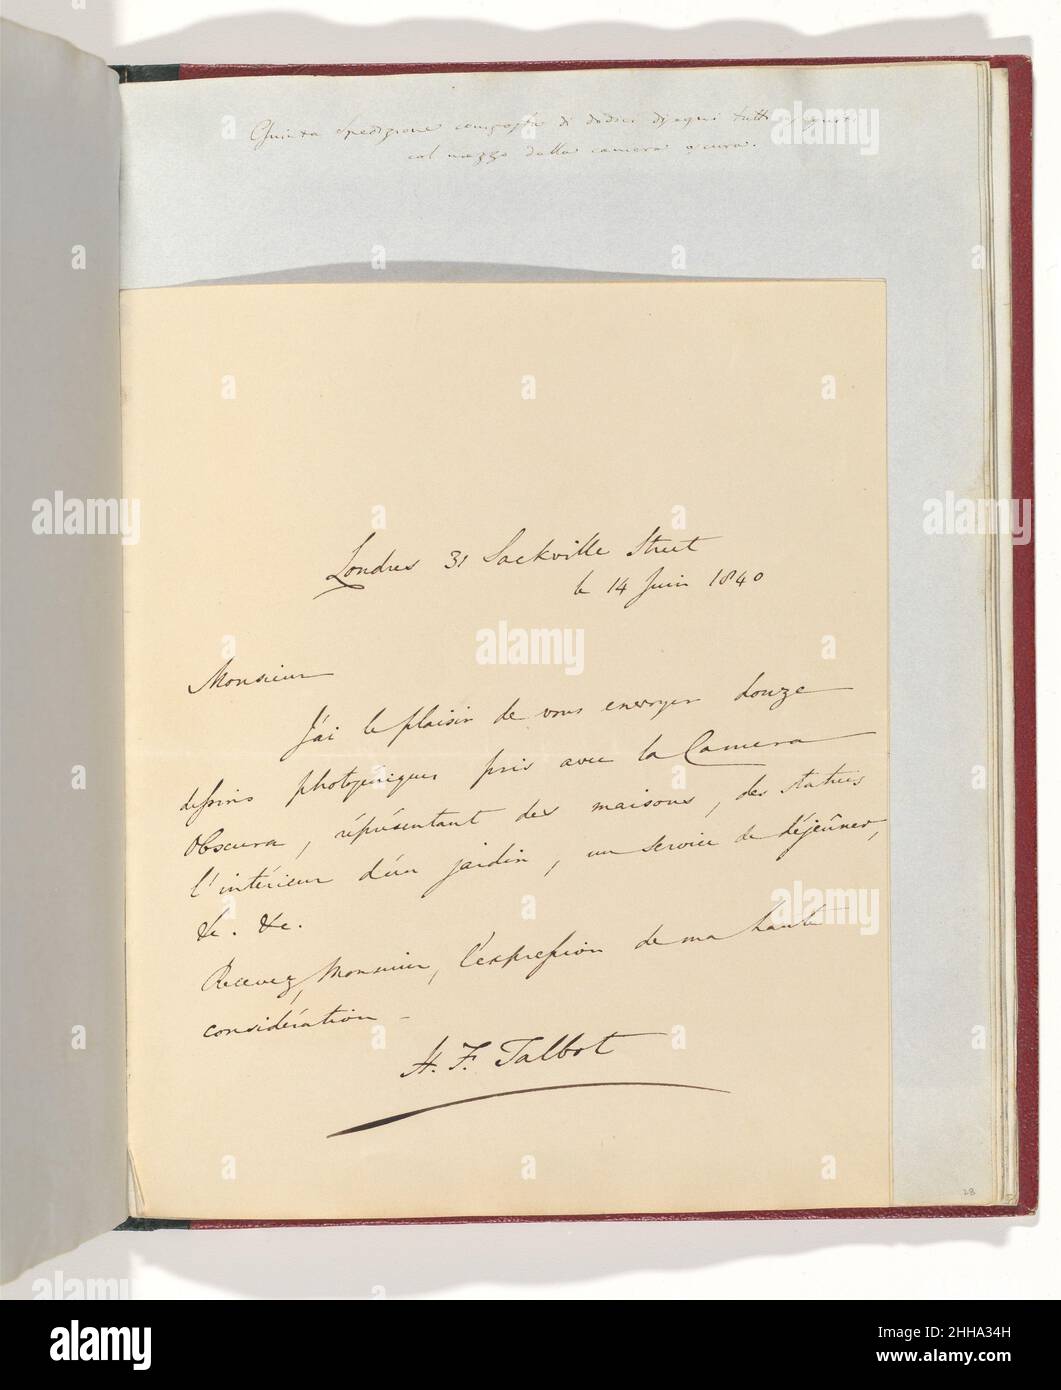 Quinta Spedizione composta di dodici disegni tutti eseguiti
col mezzo della camera oscura.
Londres 31 Sackville Street
le 14 Juin 1840
Monsieur
J'ai le plaisir de vous envoyer douze
dessins photogéniques pris avec la Camera
Obscura, réprésentant des maisons, des statues
l'intérieur d'un jardin, un service de déjeûner,
&c. &c.
Recevez, Monsieur, l'expression de ma haute
considération –
H. F. Talbot
28
alamy
alamy
alamy
alamy
alamy
Image ID: 2HHA34H
www.alamy.com